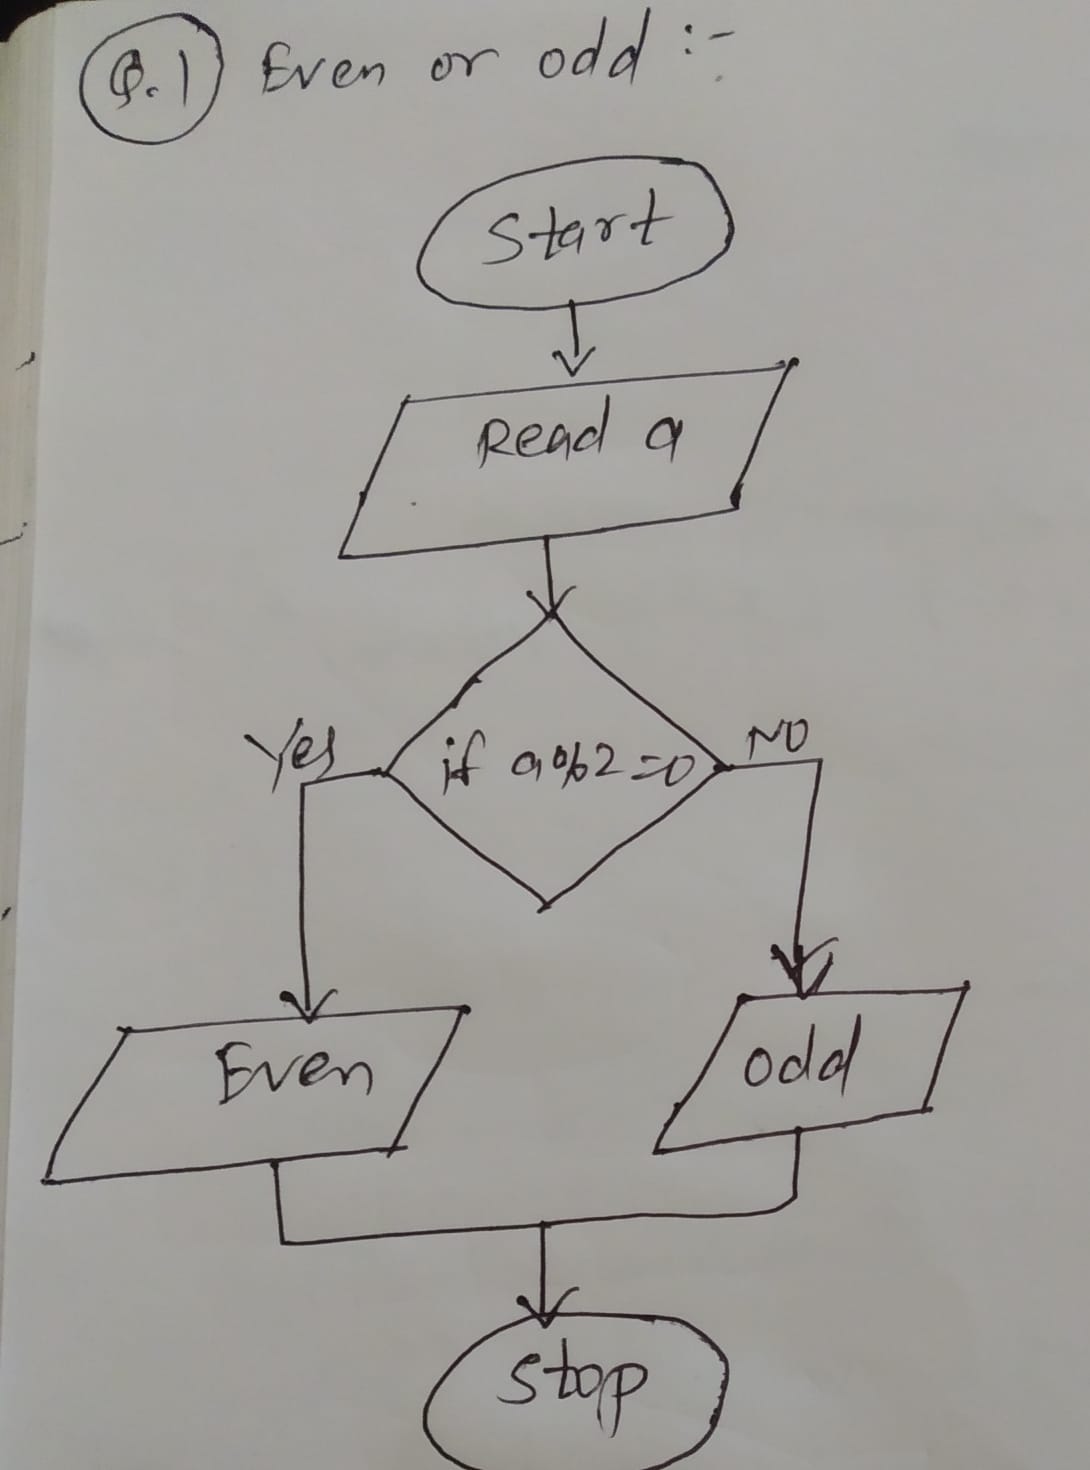 Q.1 Even or odd :-
Start
Read a
if a%2=0
Yes
NO
Even
odd
Stop